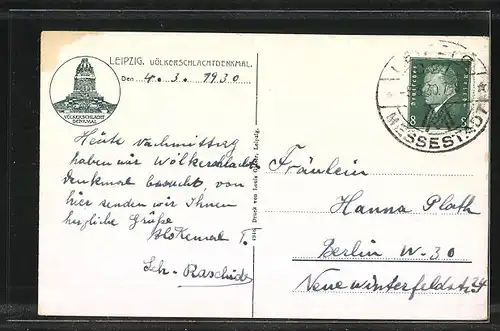 LEIPZIG. VÖLKERSCHLACHTDENKMAL.
Den 4. 3. 1930
VÖLKERSCHLACHT
DENKMAL
Heute Nachmittag
haben wir Völkerschlacht
denkmal besucht, von
hier senden wir Ihnen
herzliche Grüße
1916 Druck von Louis Leipzig.
Deutsches Reich
8 8
MESSESTADT
Fräulein
Hanna Plath
Berlin W-30
Neue Winterfeldstr 24